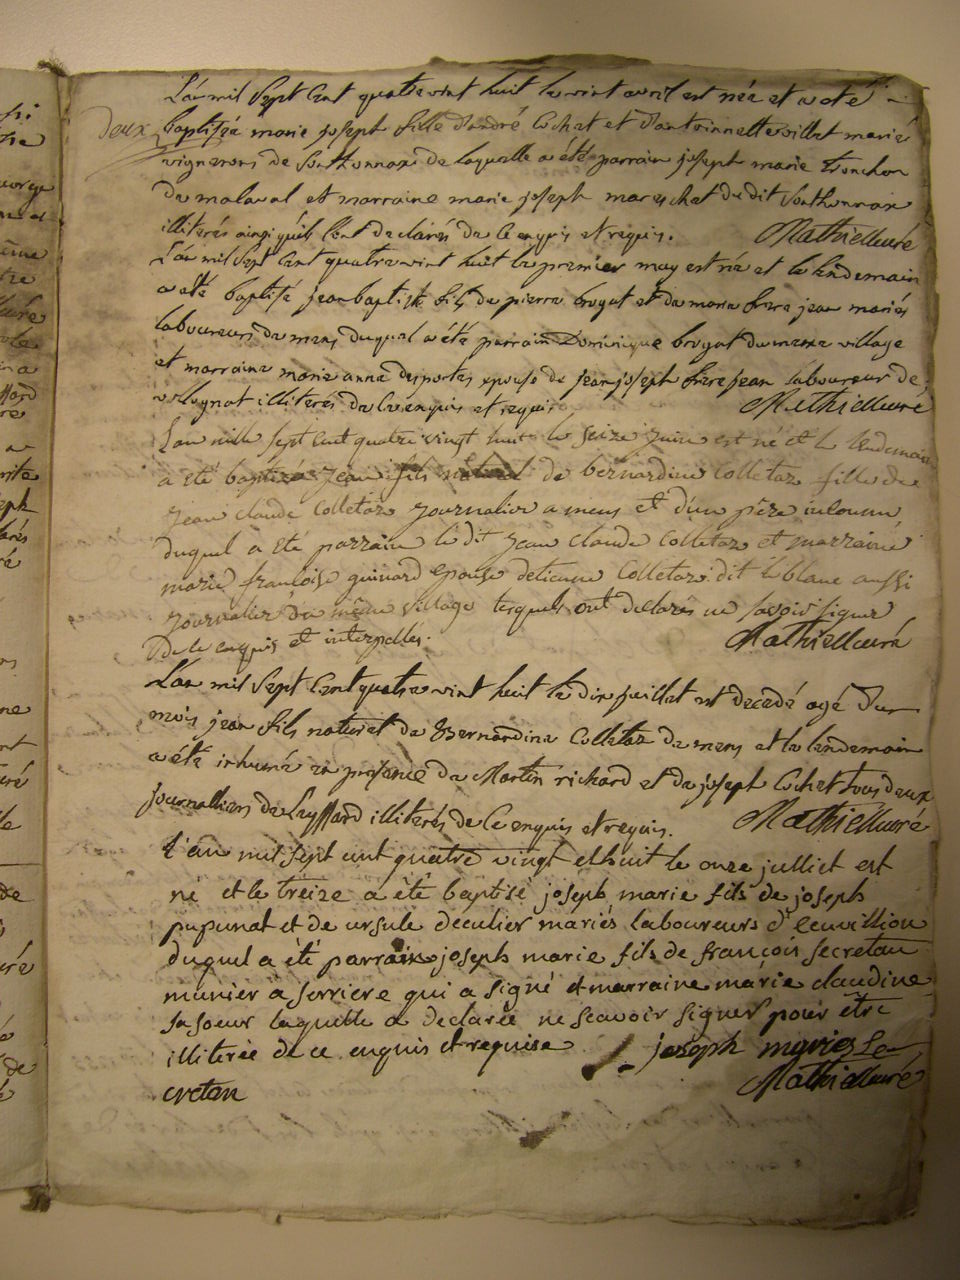 L'an mil sept cent quatrevint huit le vint avril est née et a été
Deux
baptisée marie joseph fille d'andré Cochet et d'antoinnette villet mariés
vignerons de Sonthonnax de laquelle a été parrain joseph marie tronchon
de malaval et marraine marie joseph mareschat du dit Sonthonnax
illiterés ainsi qu'ils l'ont declarés de ce enquis et requis. Mathieu curé
L'an mil sept cent quatrevint huit le premier may est né et le lendemain
a été baptisé jean baptiste fils de pierre brogat et de marie frere jean mariés
laboureurs de mens duquel a été parrain Dominique brogat du meme village
et marraine marie anne desportes epouse de jean joseph frere jean laboureur de
volognat illiterés de ce enquis et requis Mathieu curé
L'an mille sept cent quatre vingt huit le seize juin est né et le lendemain
a été baptizé jean fils naturel de bernardine Colletaz fille de
jean claude Colletaz journalier a mens et d'un père inconnu
duquel a été parrain le dit jean claude Colletaz et marraine
marie françoise guinard epouse d'etienne Colletaz dit leblanc aussi
journalier du même village lesquels ont declarés ne savoir signer
de ce enquis et interpellés. Mathieu curé
L'an mil sept cent quatrevint huit le dix juillet est decedé agé d'un
mois jean fils naturel de Bernardine Colletaz de mens et le lendemain
a été inhumé en présence de Martin richard et de joseph Cochet tous deux
journalliers de Leyssard illiterés de ce enquis et requis. Mathieu curé
L'an mil sept cent quatre vingt et huit le onze julliet est
né et le treize a été baptisé joseph marie fils de joseph
pupunat et de ursule deculier mariés laboureurs d'
duquel a été parrain joseph marie fils de françois secretan
munier a serriere qui a signé et marraine marie claudine
sa soeur laquelle a declarée ne scavoir signer pour être
illiterée de ce enquis et requise joseph marie Se
cretan Mathieu curé